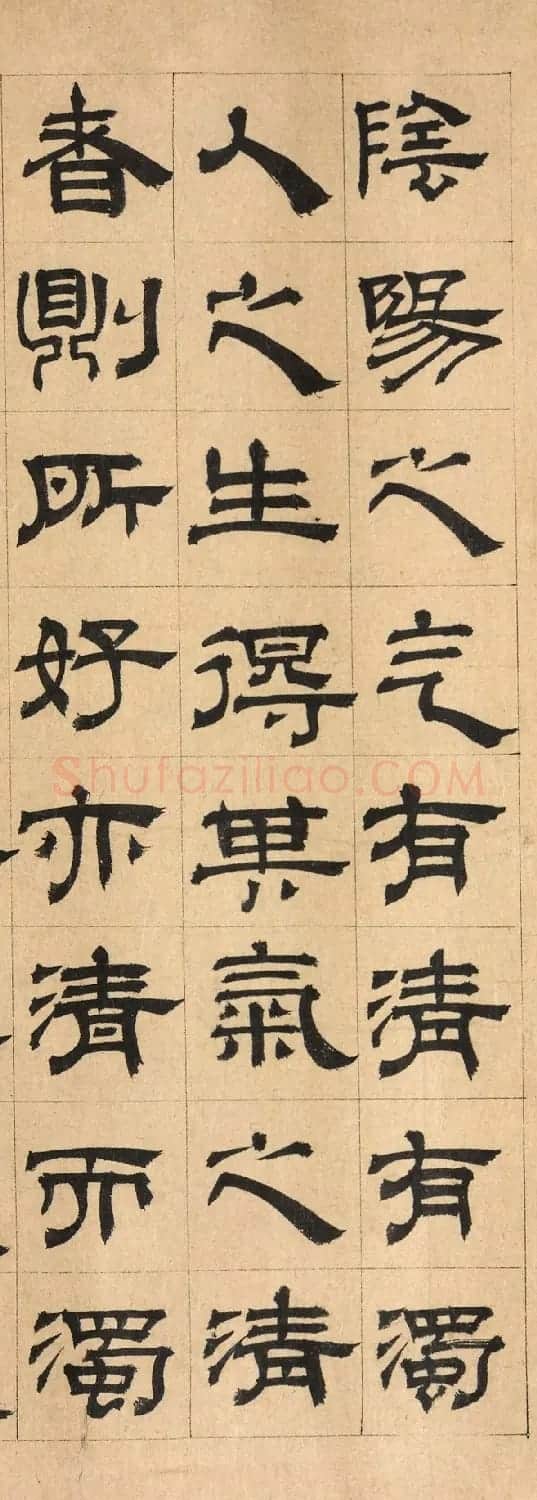 陰陽之气有清有濁
人之生得其氣之清
者則所好亦清而濁
Shufaziliao.COM